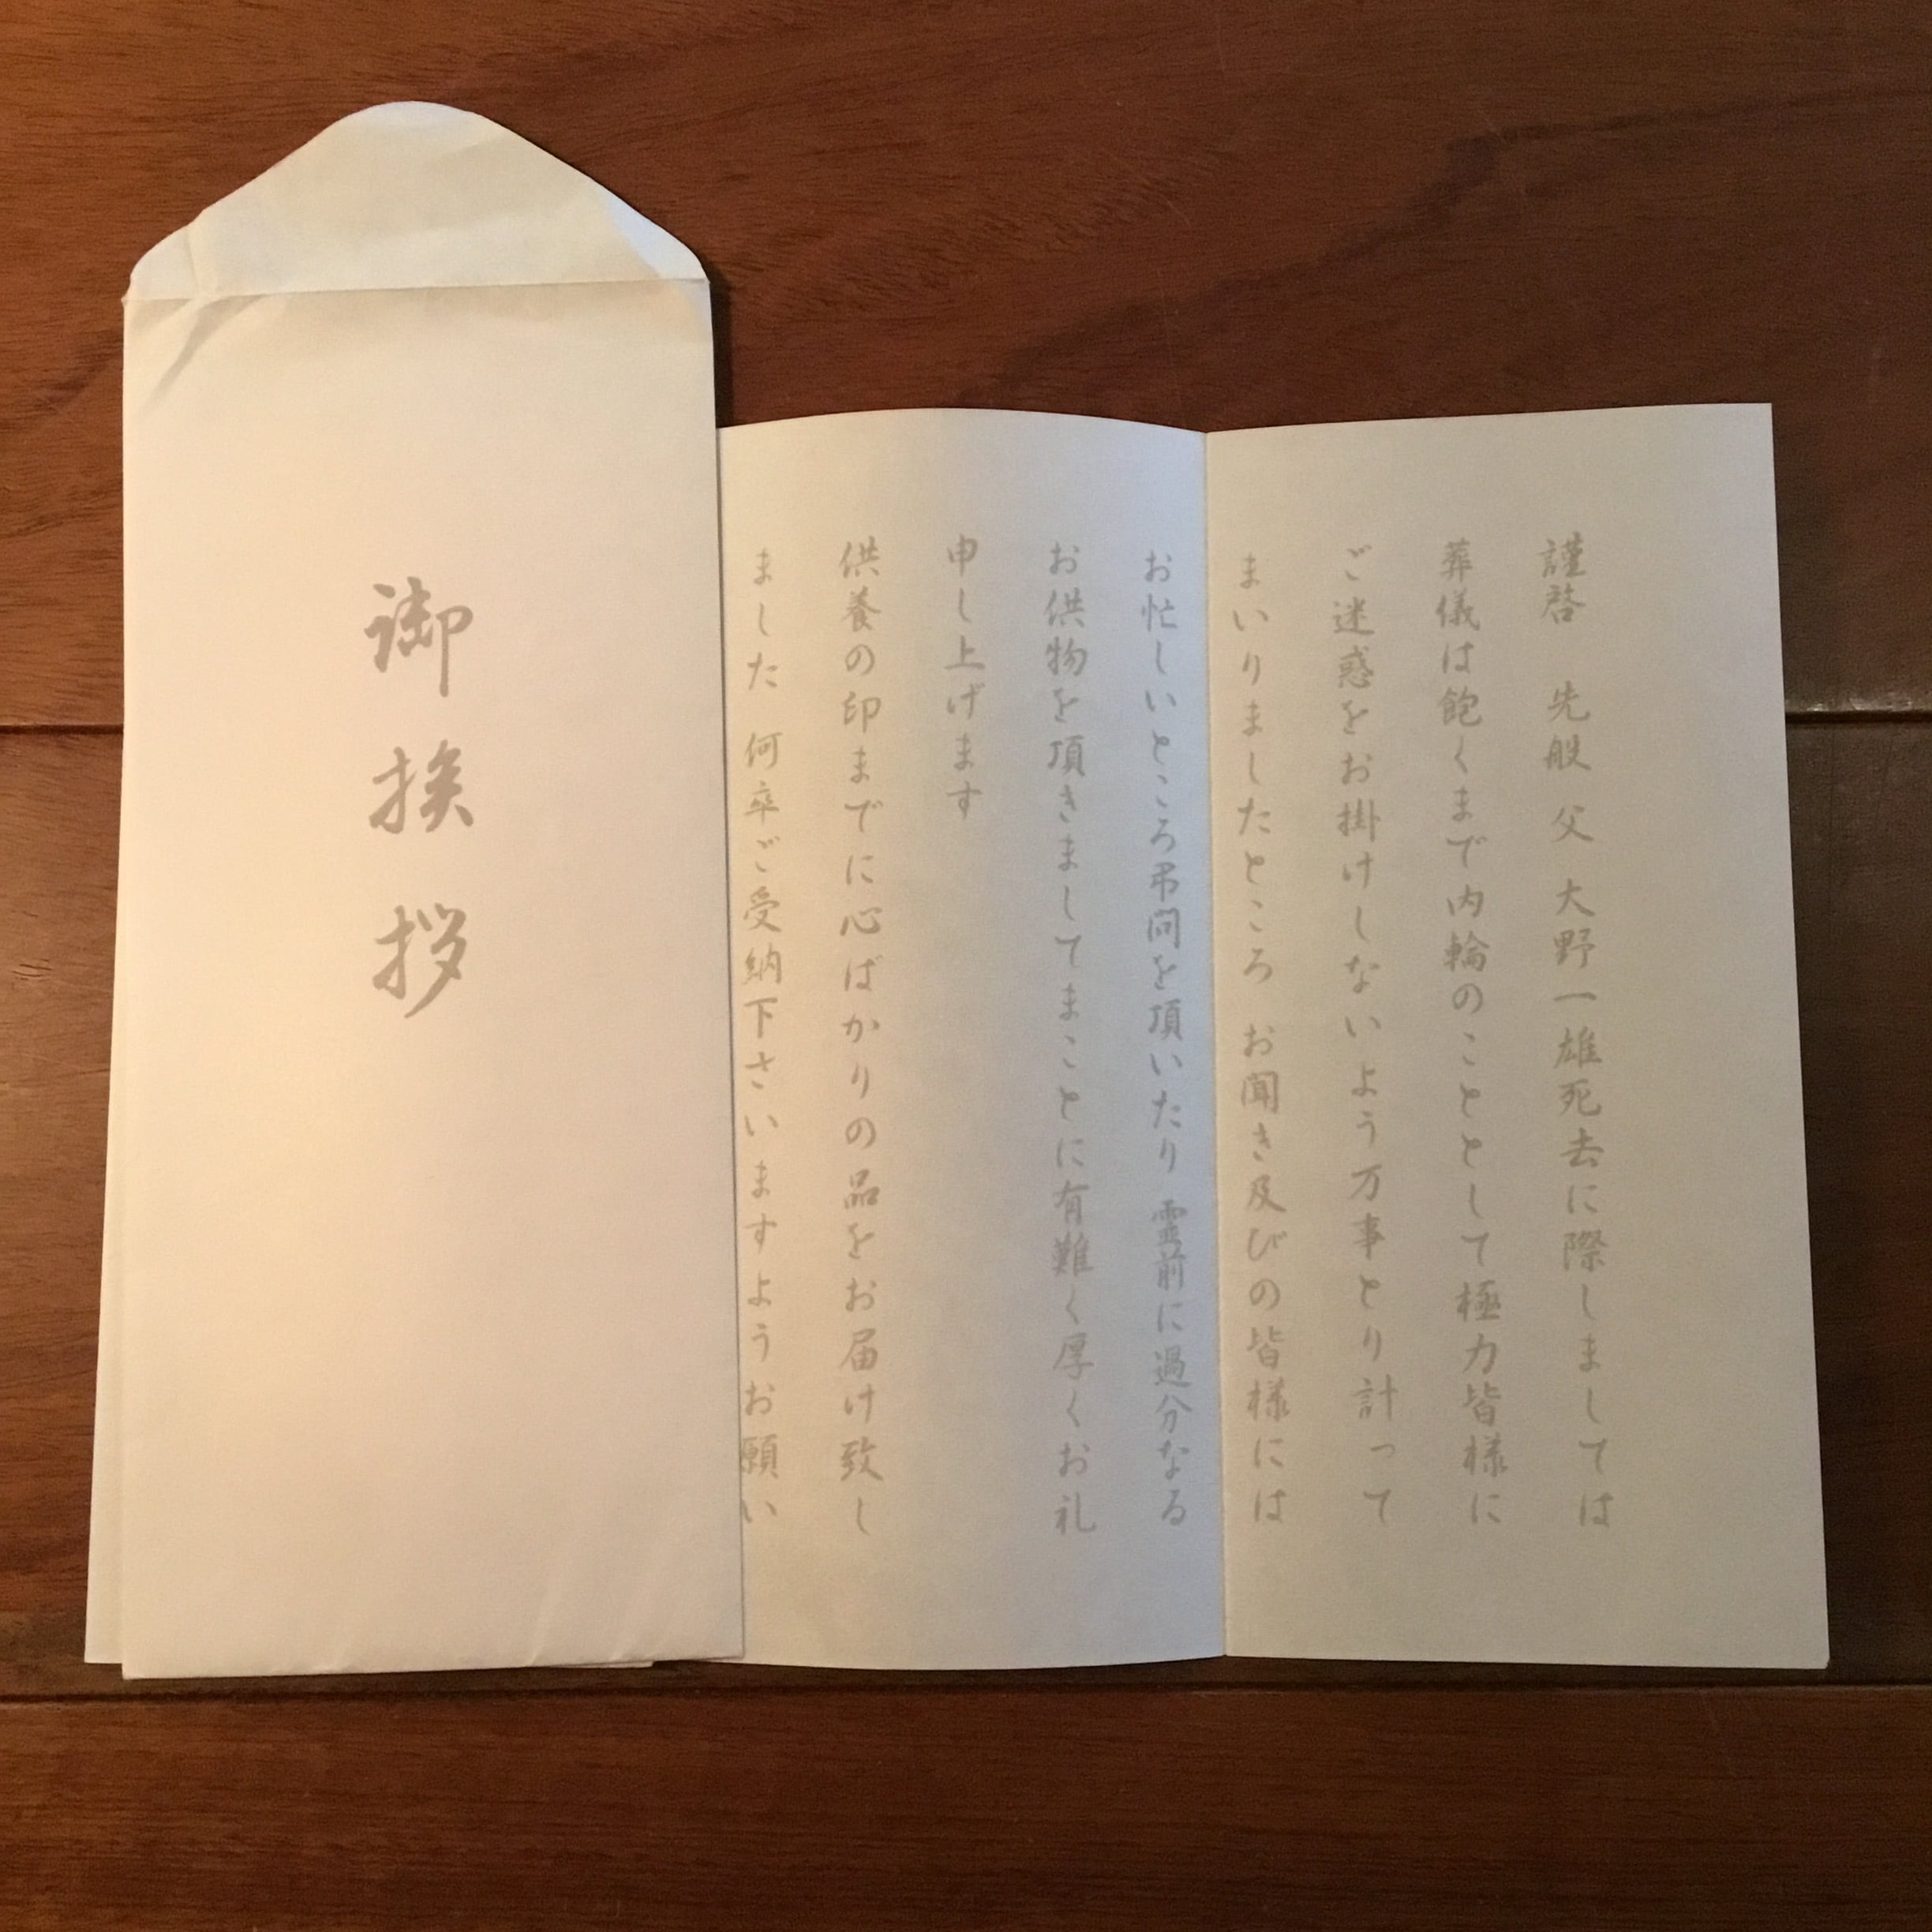 御挨拶
謹啓　先般 父 大野一雄死去に際しましては
葬儀は飽くまで内輪のこととして極力皆様に
ご迷惑をお掛けしないよう万事とり計って
まいりましたところ お聞き及びの皆様には
お忙しいところ弔問を頂いたり 霊前に過分なる
お供物を頂きましてまことに有難く厚くお礼
申し上げます
供養の印までに心ばかりの品をお届け致し
ました 何卒ご受納下さいますようお願い